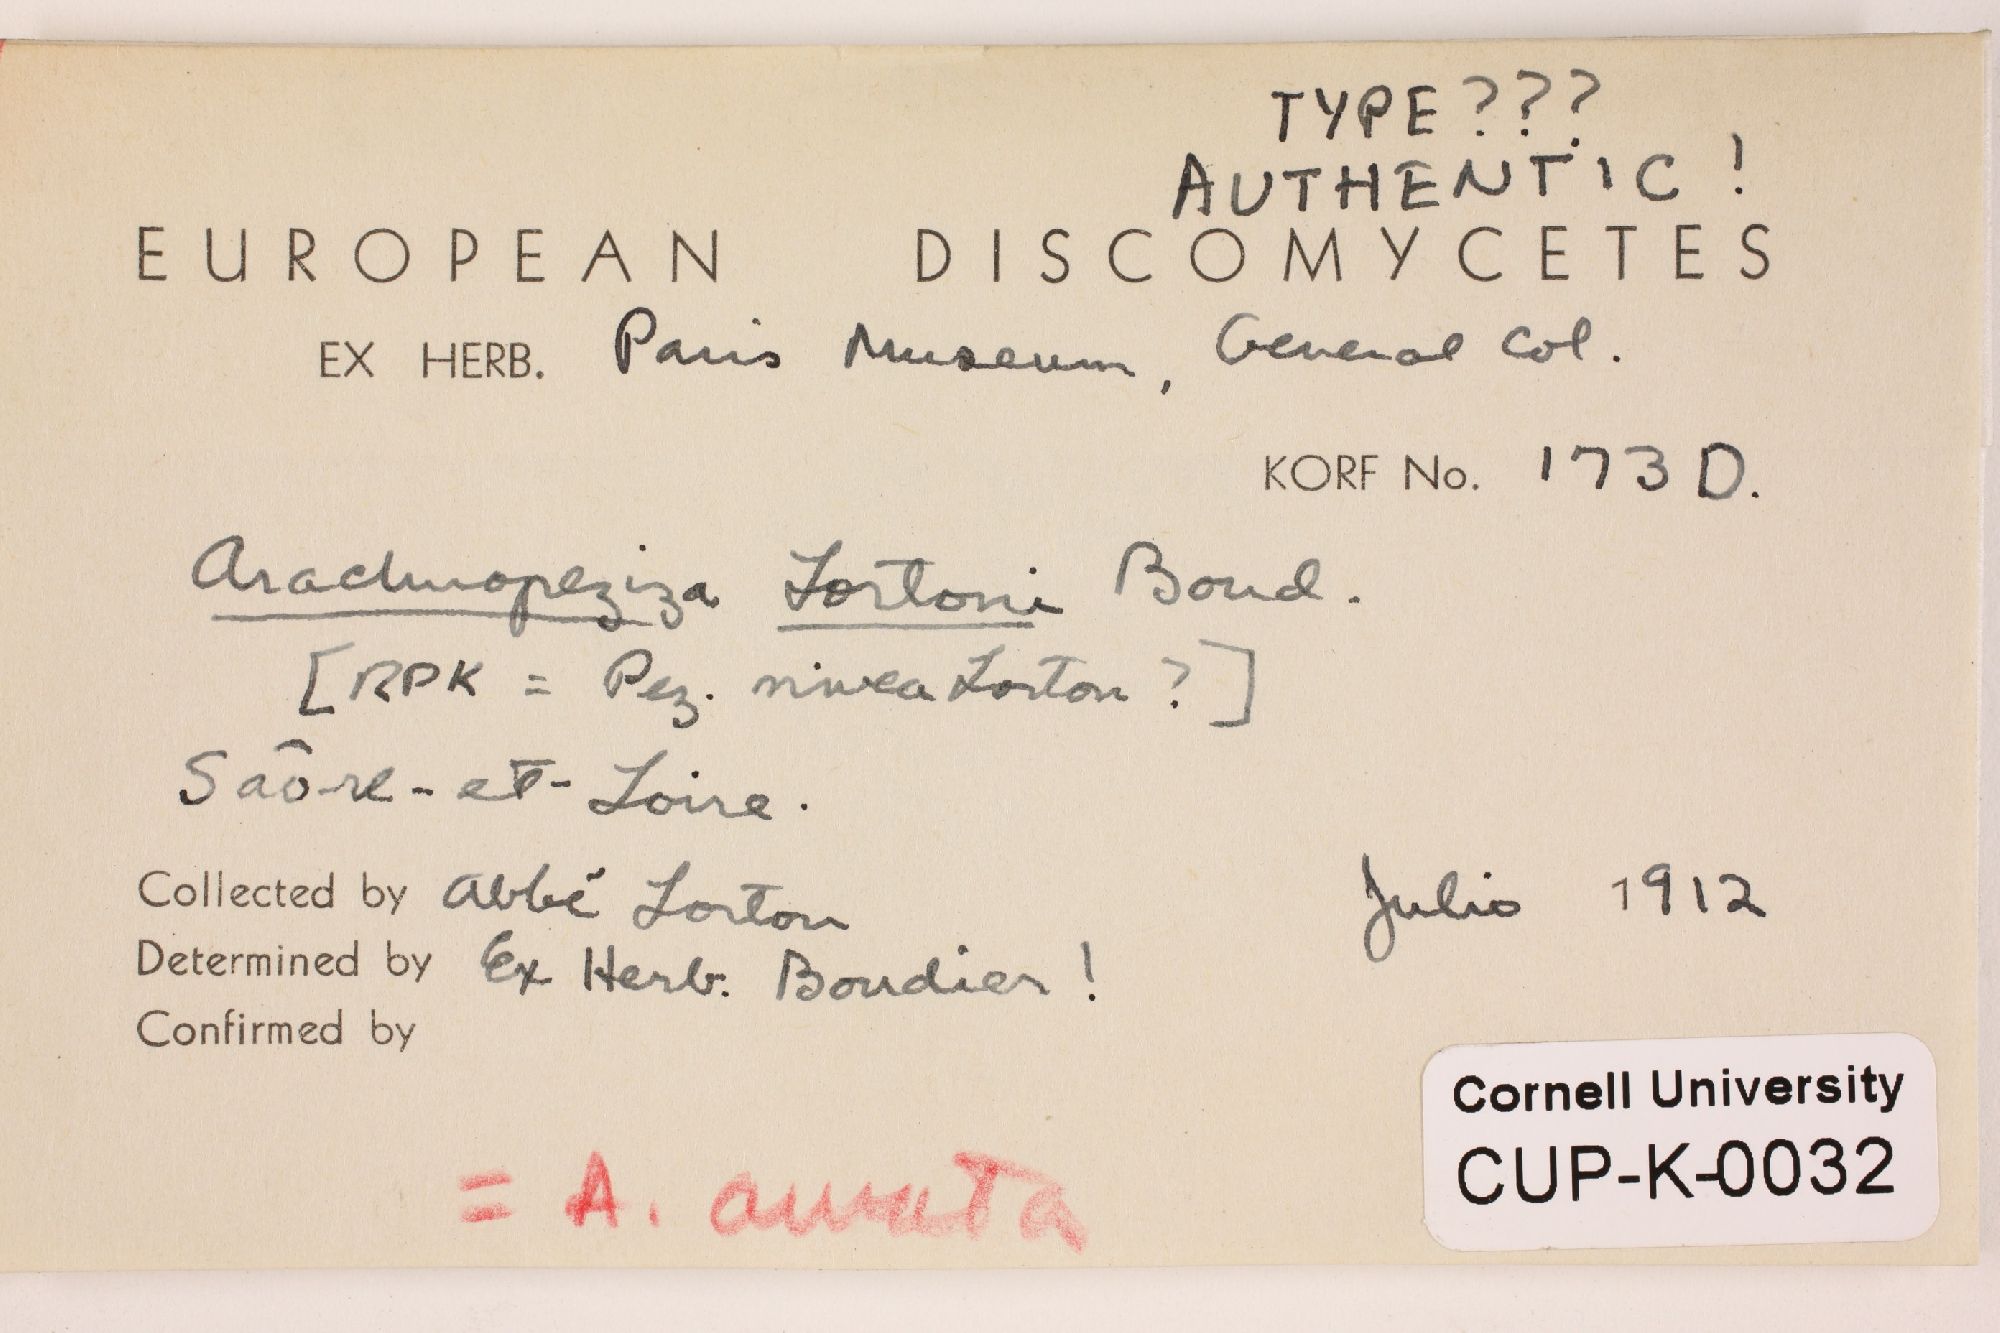 TYPE???
AUTHENTIC!
EUROPEAN DISCOMYCETES
EX HERB. Paris Museum, General Col.
KORF No. 173 D.
Arachnopeziza Lortoni Boud.
[RPK = Pez. nivea Lorton?]
Saône-et-Loire.
Collected by Abbé Lorton Julio 1912
Determined by Ex Herb. Boudier!
Confirmed by
= A. aurata
Cornell University
CUP-K-0032